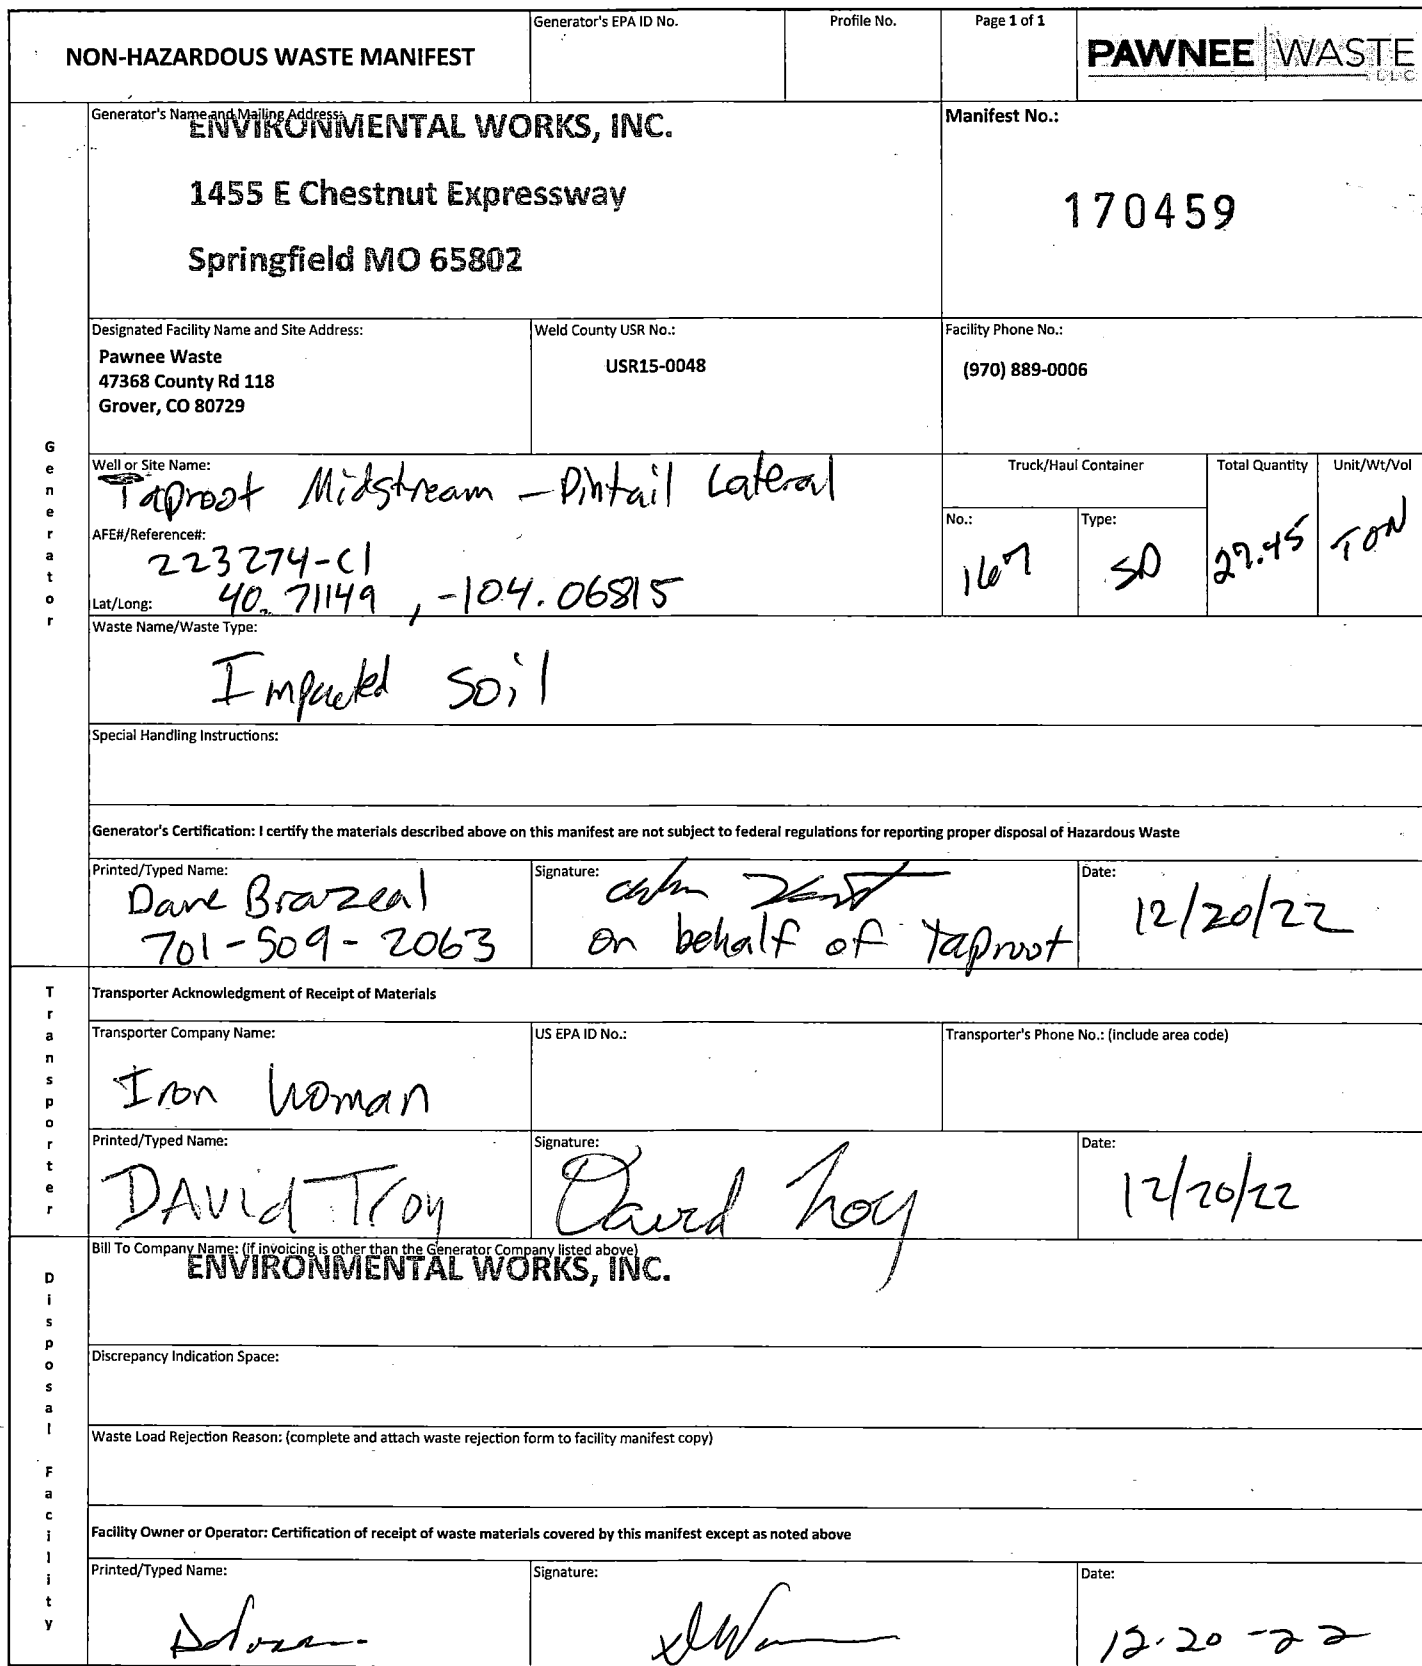 NON-HAZARDOUS WASTE MANIFEST
Generator's EPA ID No.
Profile No.
Page 1 of 1
PAWNEE WASTE
LLC
Generator's Name and Mailing Address:
ENVIRONMENTAL WORKS, INC.
1455 E Chestnut Expressway
Springfield MO 65802
Manifest No.:
170459
Designated Facility Name and Site Address:
Pawnee Waste
47368 County Rd 118
Grover, CO 80729
Weld County USR No.:
USR15-0048
Facility Phone No.:
(970) 889-0006
Generator
Well or Site Name:
Taproot Midstream - Pintail Lateral
AFE#/Reference#:
223274-C1
Lat/Long:
40.71149, -104.06815
Truck/Haul Container
No.:
167
Type:
SD
Total Quantity
27.45
Unit/Wt/Vol
TON
Waste Name/Waste Type:
Impacted Soil
Special Handling Instructions:
Generator's Certification: I certify the materials described above on this manifest are not subject to federal regulations for reporting proper disposal of Hazardous Waste
Printed/Typed Name:
Dave Brazeal
701-509-2063
Signature:
on behalf of Taproot
Date:
12/20/22
Transporter
Transporter Acknowledgment of Receipt of Materials
Transporter Company Name:
Iron Woman
US EPA ID No.:
Transporter's Phone No.: (include area code)
Printed/Typed Name:
DAVid Troy
Signature:
David Troy
Date:
12/20/22
Disposal Facility
Bill To Company Name: (if invoicing is other than the Generator Company listed above)
ENVIRONMENTAL WORKS, INC.
Discrepancy Indication Space:
Waste Load Rejection Reason: (complete and attach waste rejection form to facility manifest copy)
Facility Owner or Operator: Certification of receipt of waste materials covered by this manifest except as noted above
Printed/Typed Name:
Signature:
Date:
12-20-22